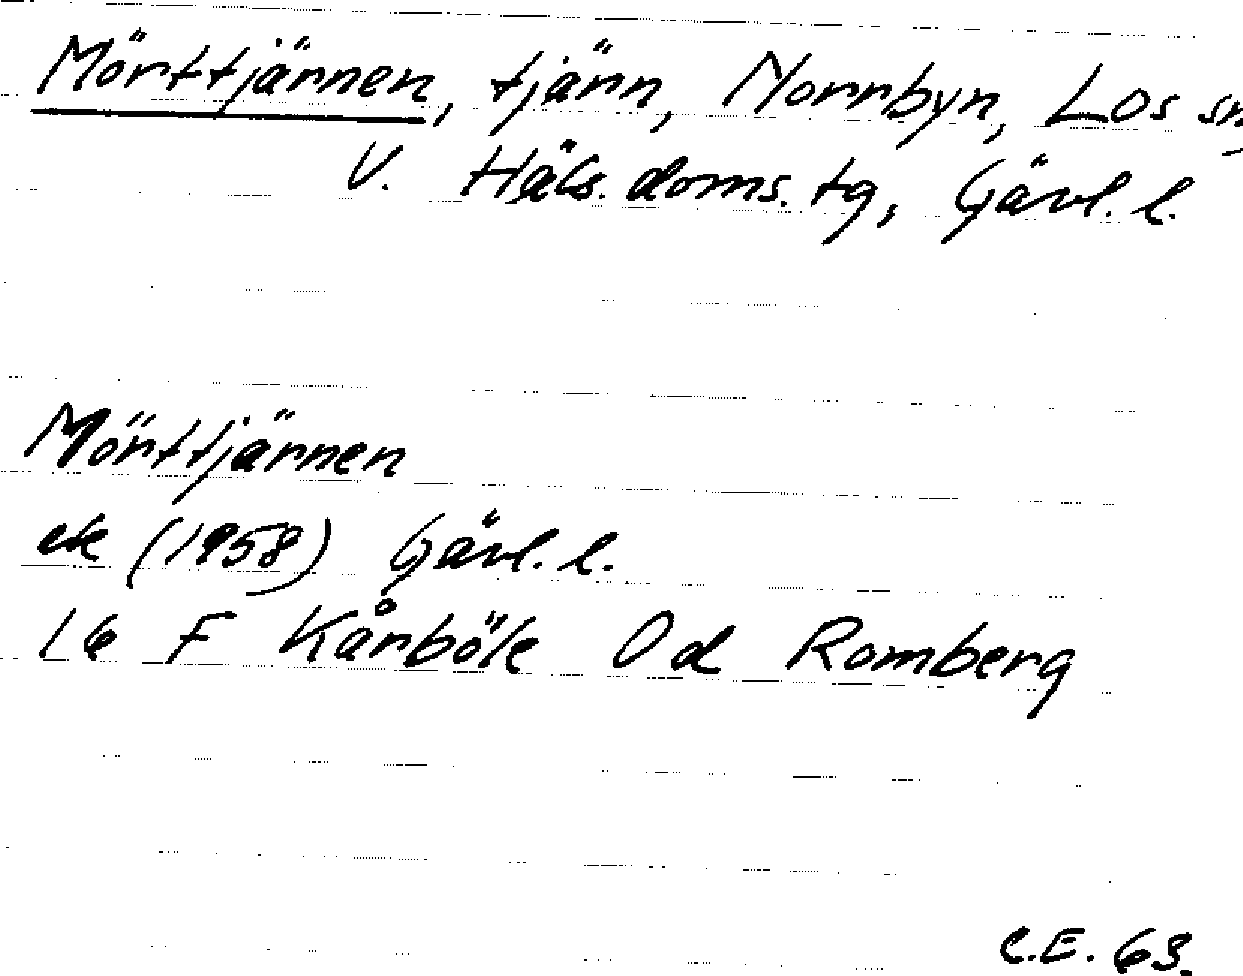 Mörttjärnen, tjärn, Norrbyn, Los sn,
V. Häls. doms. tg, Gävl. l.
Mörttjärnen
ek (1958) Gävl. l.
16 F Kårböle Od Romberg
C.E. 63.